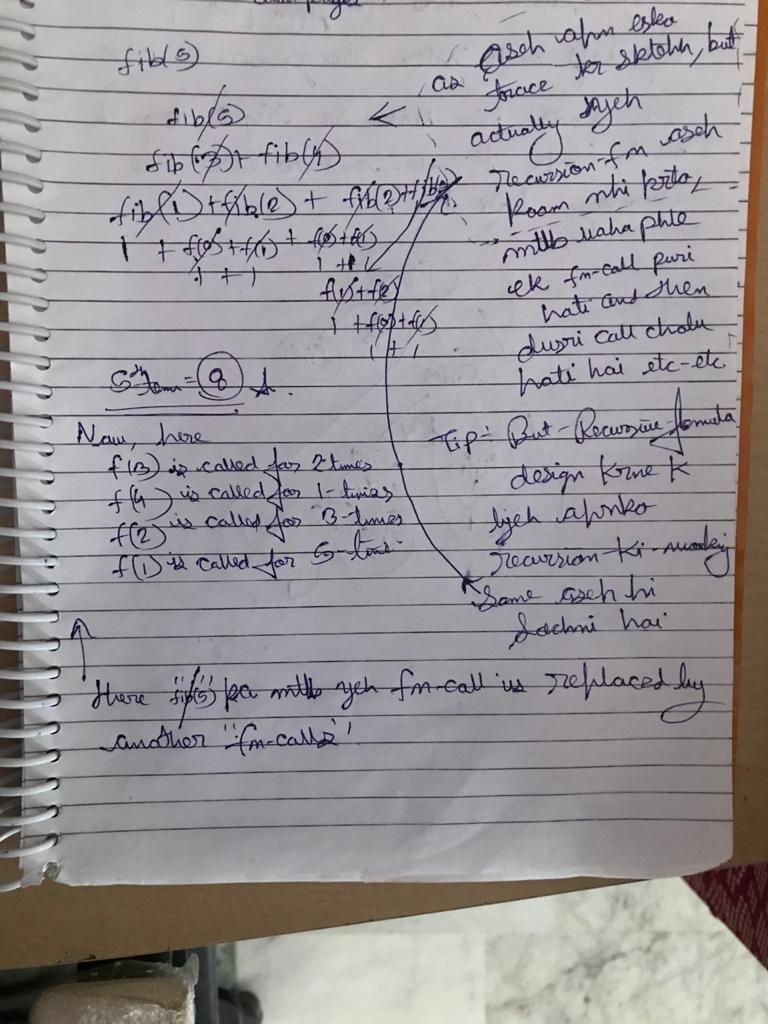 fib(5)
fib(5)
fib(3) + fib(4)
fib(1) + fib(2) + fib(2) + fib(3)
1 + f(0) + f(1) + f(0) + f(1)
1 + 1
1 + 1
f(1) + f(2)
1 + f(0) + f(1)
1 + 1
5th term = 8 A.
Now, here
f(3) is called for 2 times
f(4) is called for 1-times
f(2) is called for 3-times
f(1) is called for 5-time
as
aseh apn esko
trace kr sktehh, but
actually yeh
recursion-fn aseh
kaam nhi krta,
mtlb yaha phle
ek fn-call puri
hoti and then
dusri call chalu
hoti hai etc-etc
Tip:- But-Recursive-formula
design krne k
liyeh apnko
recursion-ki-
Same aseh hi
Sochni hai
Here "fib(5)" ka mtlb yeh fn-call is replaced by
another "fn-calls"